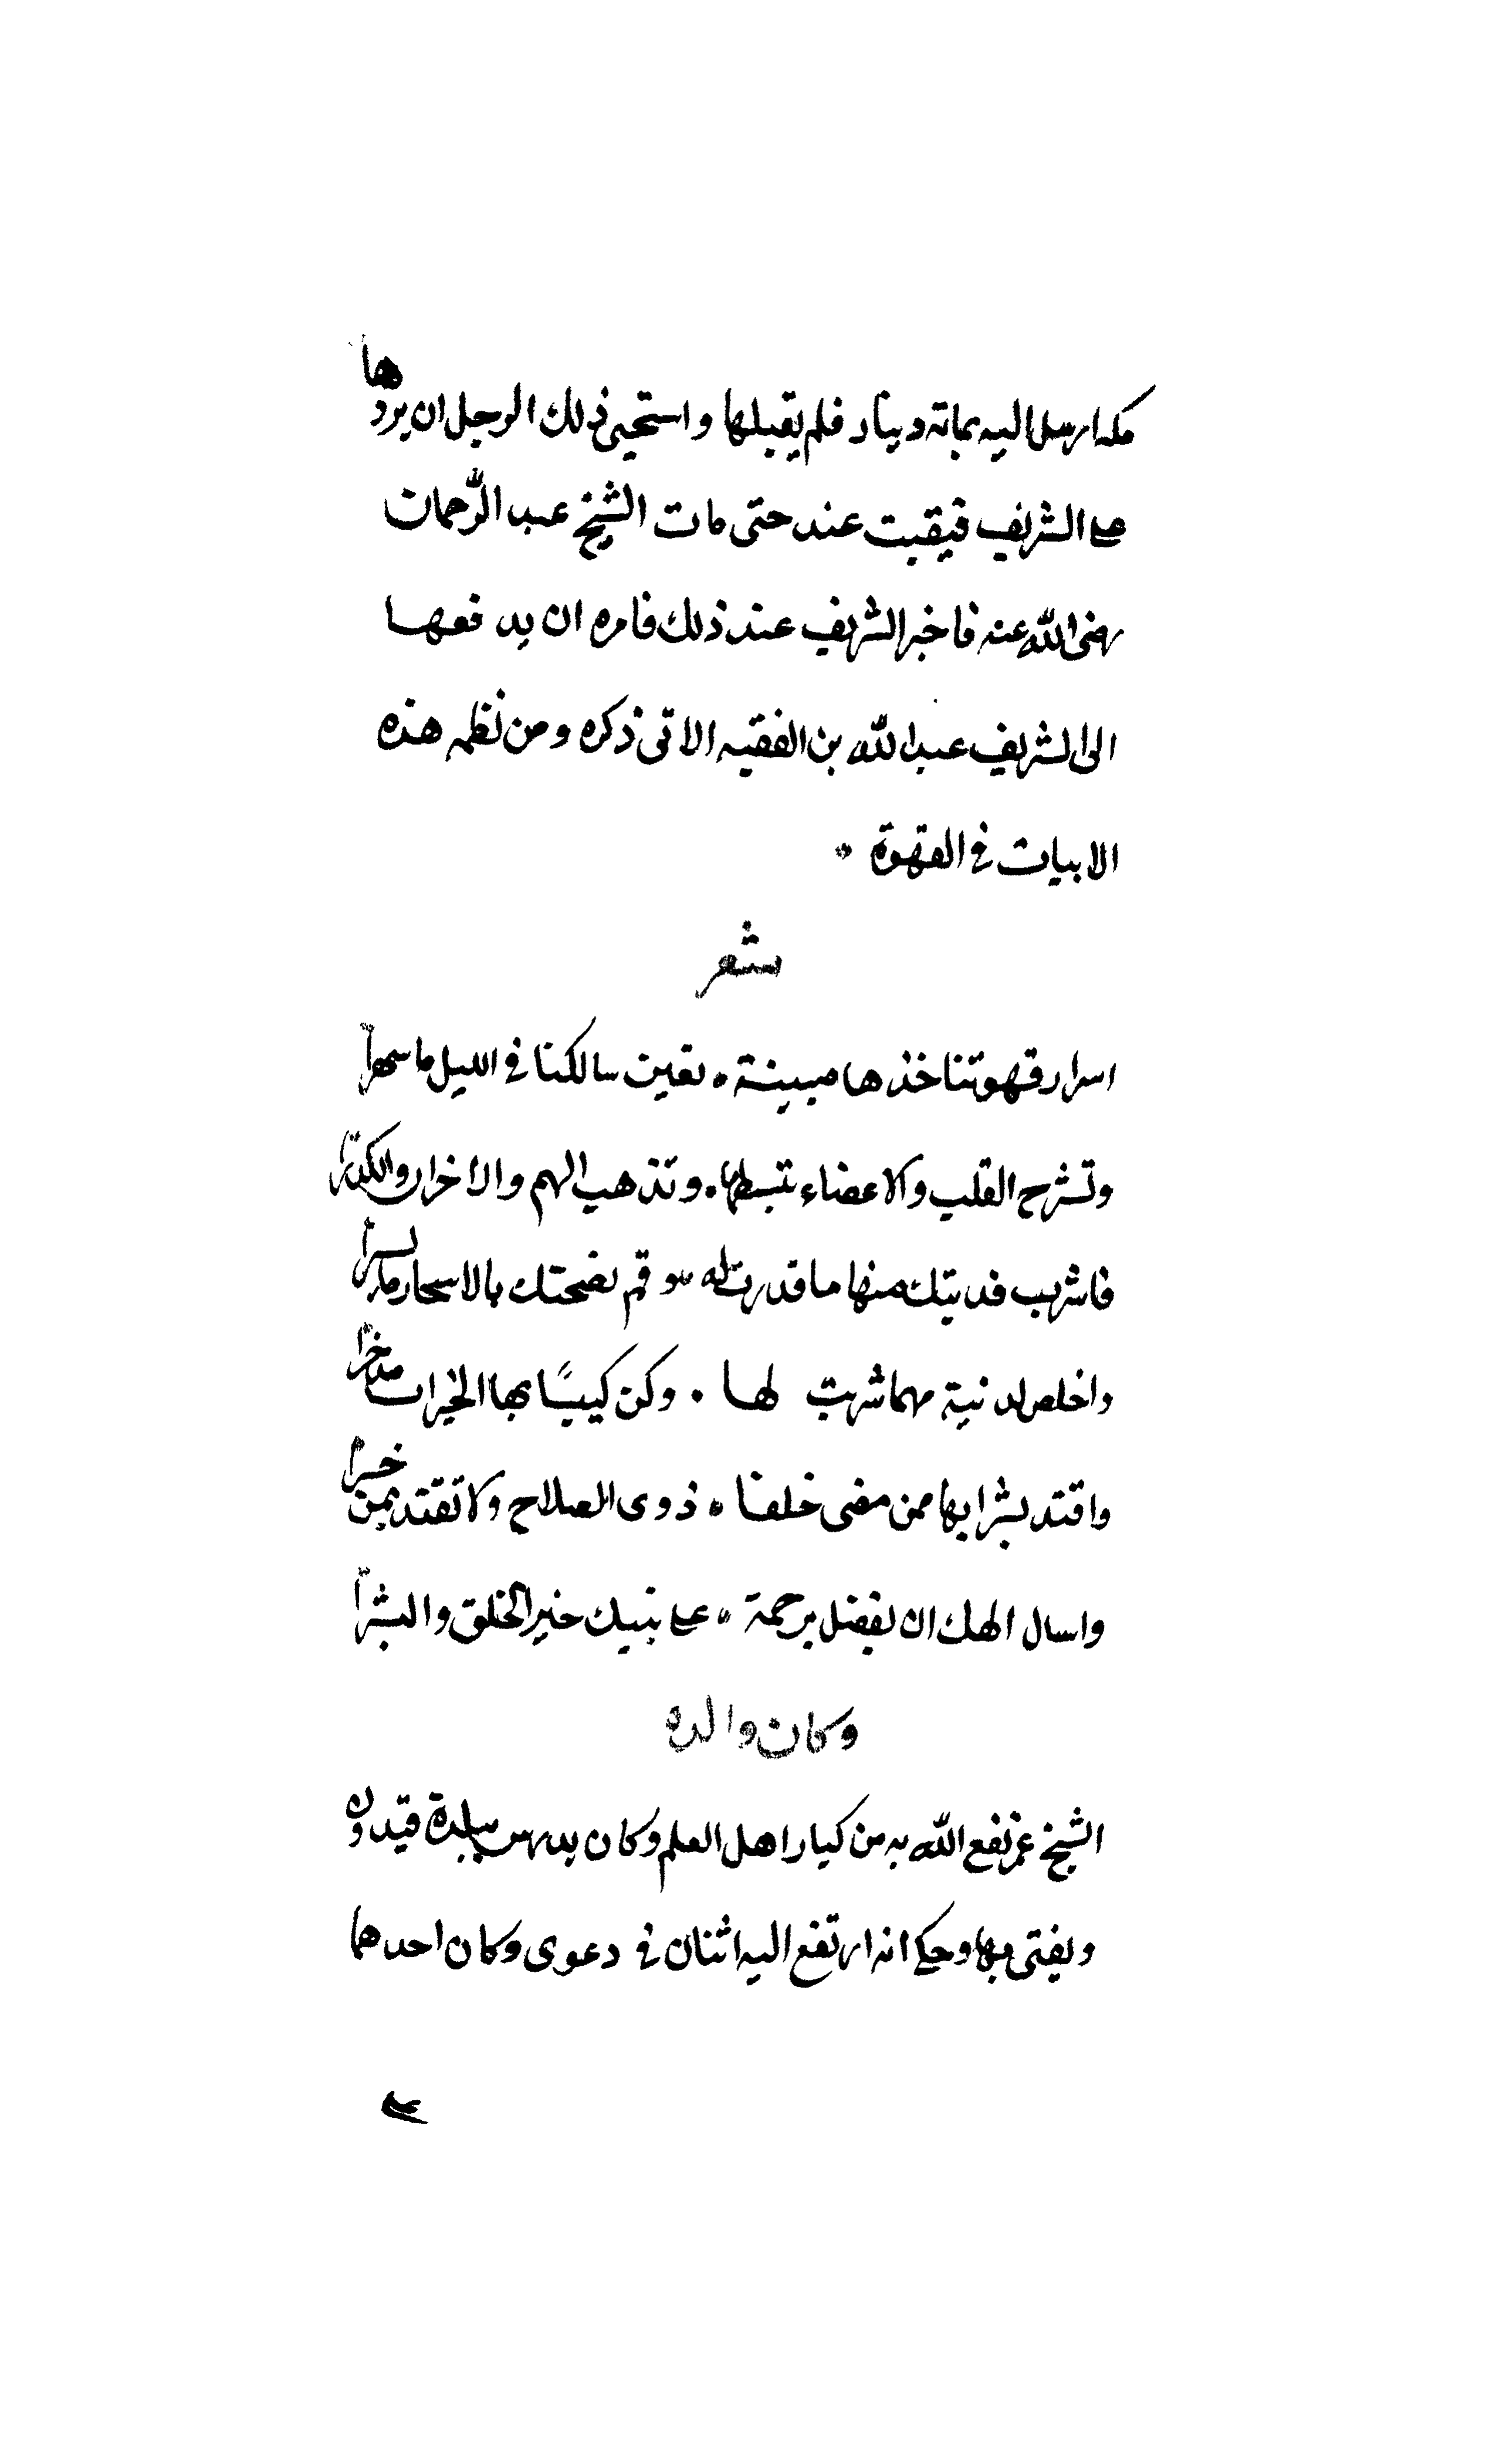 مكه ارسل اليه بماتة دينار فلم يقبلها واستحيى ذلك الرجل ان يردها
على الشريف فبقيت عند حتى مات الشيخ عبد الرّحمان
رضى الله عنه فاخبر الشريف عند ذلك فامره ان يدفعها
الى الشريف عبد الله بن الفقيه الاتى ذكره ومن نظمه هذه
الابيات في القهوة
شعر
اسرار قهوتنا خذها مبينة • تعين سالكنا في الليل ما سهرا
وتشرح القلب والاعضاء تبسطها • وتذهب الهم والاخزان والكدرا
فاشرب فديتك منها ما قدرت له • وقم بضحتك بالاسحار
واخلص له نية مهما شربت لها • وكن كيسًا بها الخيرات مدخرا
واقتد بشرابها ممن مضى خلفا • ذوى الصلاح ولا تقتد بمن خسرا
واسال الهك ان يفضل برحمة • على نبيك خير الخلق والبشرا
وكان والده
الشيخ عمر نفع الله به من كبار اهل العلم وكان يدرس ببلدة قيدون
ويفتى بها وحكى انه ارتفع اليه اثنان في دعوى وكان احدهما
على